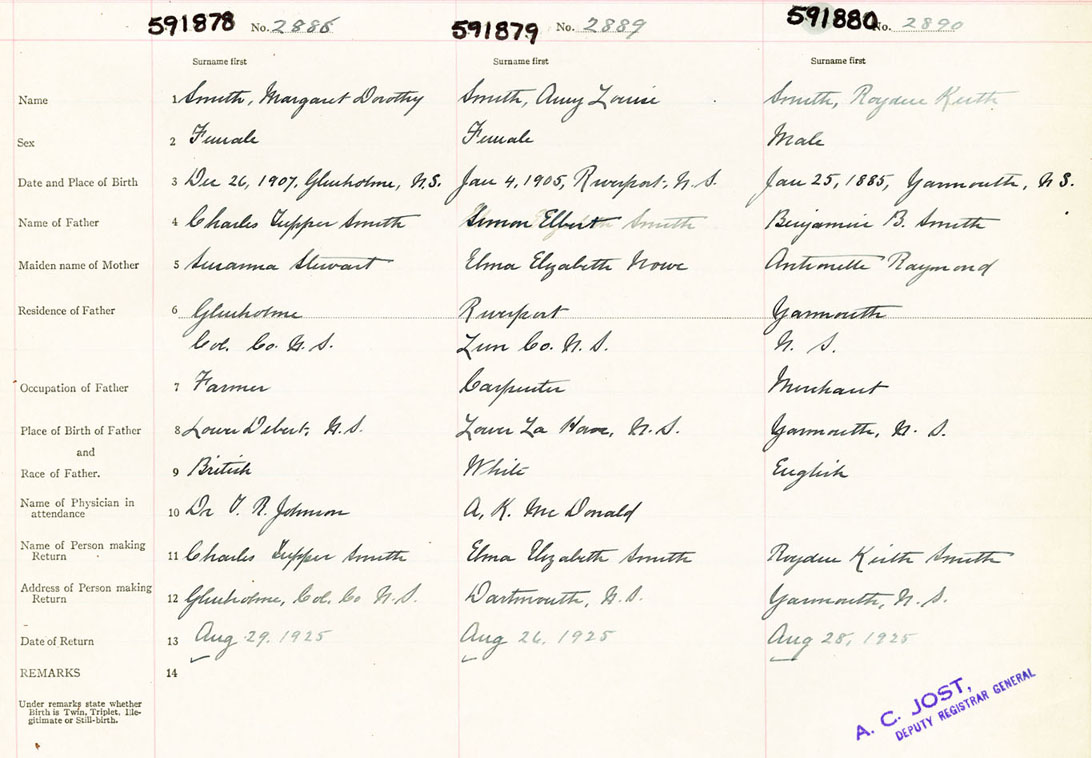 591878 No. 2888 591879 No. 2889 591880 No. 2890
Surname first Surname first Surname first
Name 1 Smith, Margaret Dorothy Smith, Amy Louise Smith, Royden Keith
Sex 2 Female Female Male
Date and Place of Birth 3 Dec 26, 1907, Glenholme, N.S. Jan 4, 1905, Riverport, N.S. Jan 25, 1885, Yarmouth, N.S.
Name of Father 4 Charles Tupper Smith Simon Elbert Smith Benjamin B. Smith
Maiden name of Mother 5 Susanna Stewart Elma Elizabeth Nowe Antionette Raymond
Residence of Father 6 Glenholme Riverport Yarmouth
Col. Co. N.S. Lun Co. N.S. N. S.
Occupation of Father 7 Farmer Carpenter Merchant
Place of Birth of Father 8 Lower Debert, N.S. Lower La Have, N.S. Yarmouth, N.S.
and
Race of Father. 9 British White English
Name of Physician in
attendance 10 Dr T. R. Johnson A. K. Mc Donald
Name of Person making
Return 11 Charles Tupper Smith Elma Elizabeth Smith Royden Keith Smith
Address of Person making
Return 12 Glenholme, Col. Co N.S. Dartmouth, N.S. Yarmouth, N.S.
Date of Return 13 Aug 29. 1925 Aug 26, 1925 Aug 28, 1925
REMARKS 14
Under remarks state whether
Birth is Twin, Triplet, Ille-
gitimate or Still-birth.
A. C. JOST,
DEPUTY REGISTRAR GENERAL